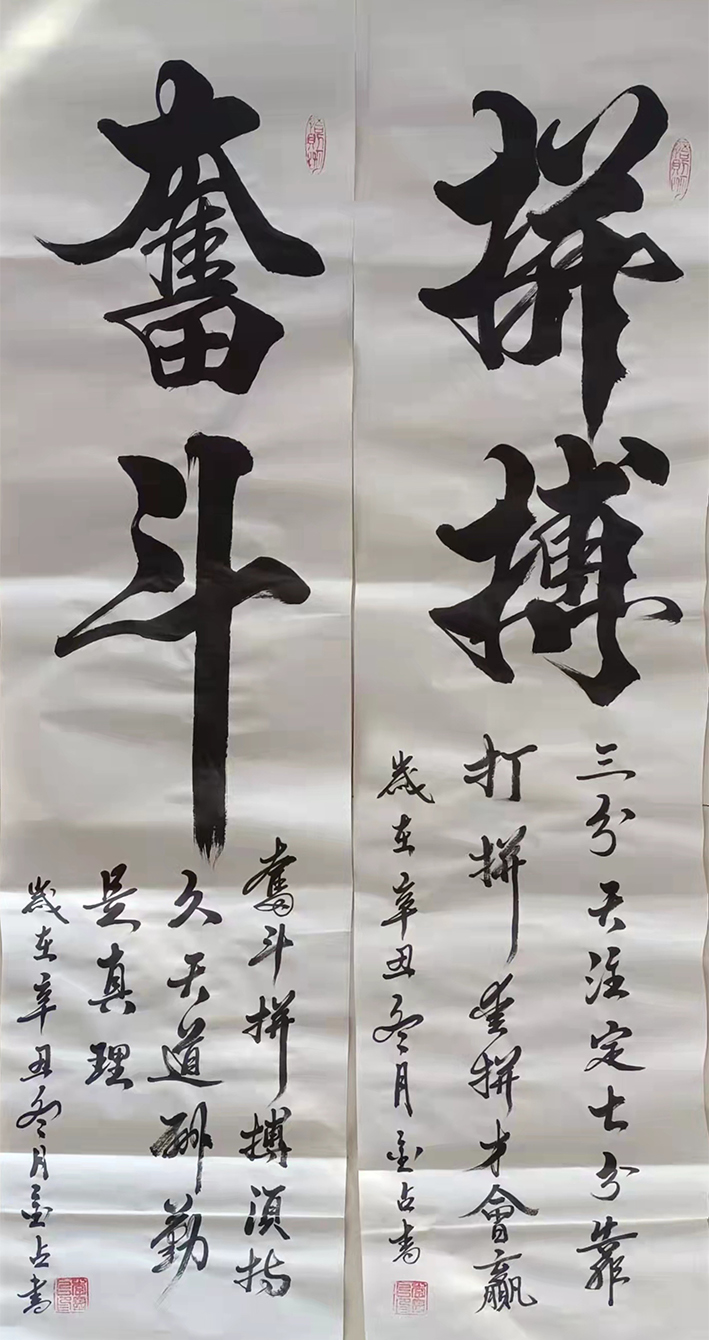 拼搏
三分天注定七分靠
打拼爱拼才會贏
歲在辛丑冬月金占書
奮斗
奮斗拼搏須持
久天道酬勤
是真理
歲在辛丑冬月金占書